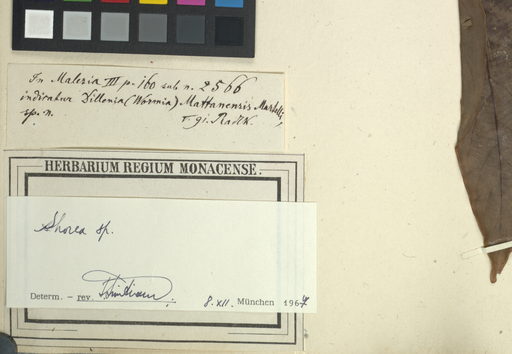 In Malesia III p. 160 sub n. 2566
indicatur Dillenia (Wormia) Mattanensis Martelli,
sp. n.
HERBARIUM REGIUM MONACENSE.
Shorea sp.
Determ. – rev.
8. XII. München 1967